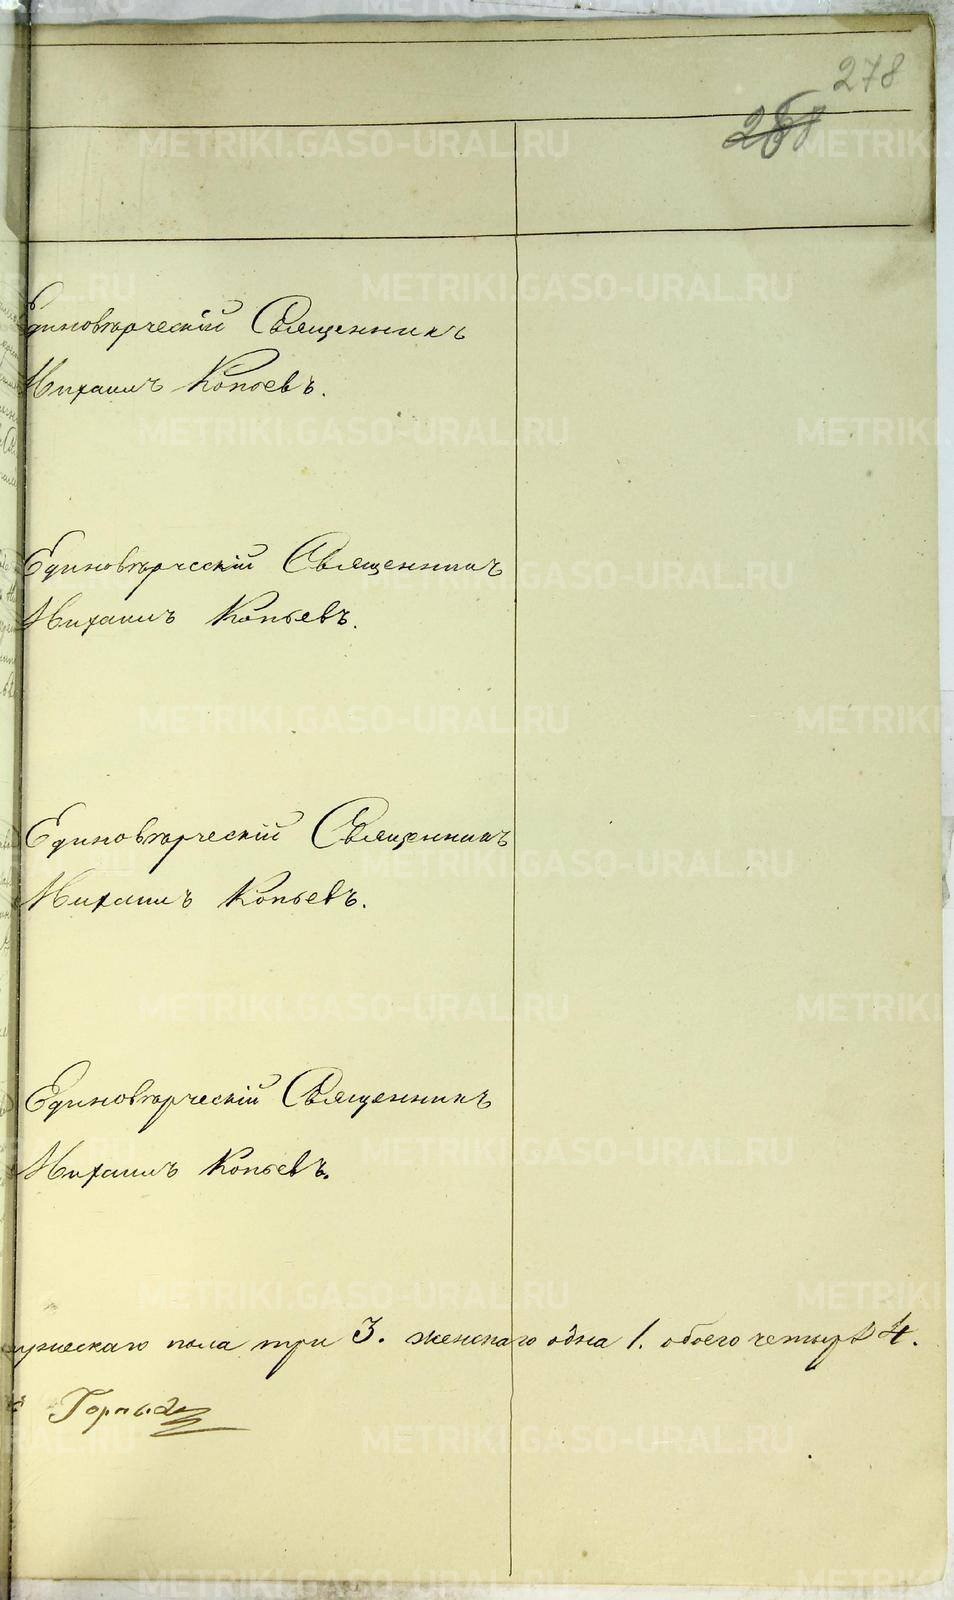 278
268
Единовѣрческій Священникъ
Михаилъ Копьевъ.
Единовѣрческій Священникъ
Михаилъ Копьевъ.
Единовѣрческій Священникъ
Михаилъ Копьевъ.
Единовѣрческій Священникъ
Михаилъ Копьевъ.
мужескаго пола три 3. женскаго одна 1. обоего четыре 4.
METRIKI.GASO-URAL.RU